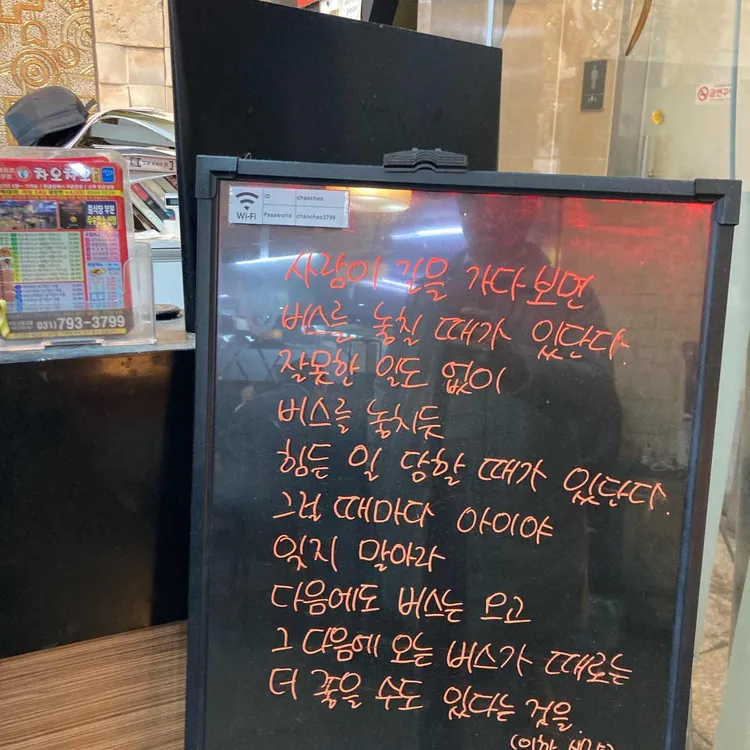 차오차이
031)793-3799
금연구역
Wi-Fi
ID chaochao
Password chaochao3799
사람이 길을 가다보면
버스를 놓칠 때가 있단다.
잘못한 일도 없이
버스를 놓치듯
힘든 일 당할 때가 있단다.
그럴 때마다 아이야
잊지 말아라
다음에도 버스는 오고
그 다음에 오는 버스가 때로는
더 좋을 수도 있다는 것을.